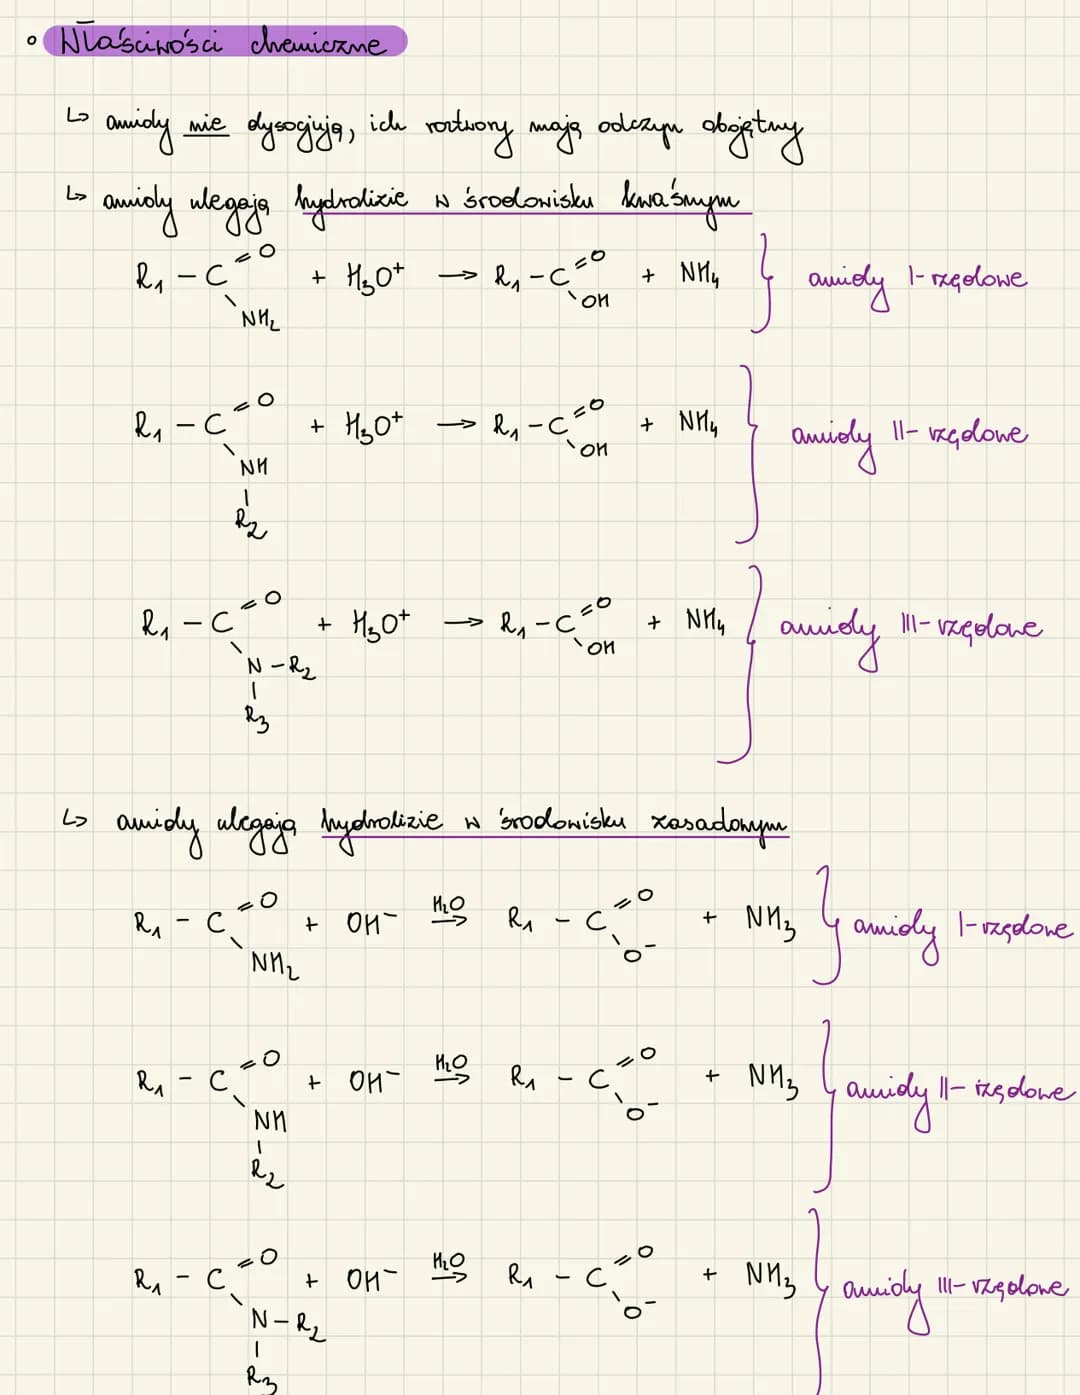 Właściwości chemiczne
↳ amidy nie dysocjują, ich roztwory mają odczyn obojętny
↳ amidy ulegają hydrolizie w środowisku kwaśnym
R₁ - C =O + H₃O⁺ → R₁ - C =O + NH₄ } amidy I-rzędowe
NH₂ OH
R₁ - C =O + H₃O⁺ → R₁ - C =O + NH₄ } amidy II-rzędowe
NH OH
R₂
R₁ - C =O + H₃O⁺ → R₁ - C =O + NH₄ } amidy III-rzędowe
N - R₂ OH
R₃
↳ amidy ulegają hydrolizie w środowisku zasadowym
R₁ - C =O + OH⁻ H₂O → R₁ - C =O + NH₃ } amidy I-rzędowe
NH₂ O⁻
R₁ - C =O + OH⁻ H₂O → R₁ - C =O + NH₃ } amidy II-rzędowe
NH O⁻
R₂
R₁ - C =O + OH⁻ H₂O → R₁ - C =O + NH₃ } amidy III-rzędowe
N - R₂ O⁻
R₃